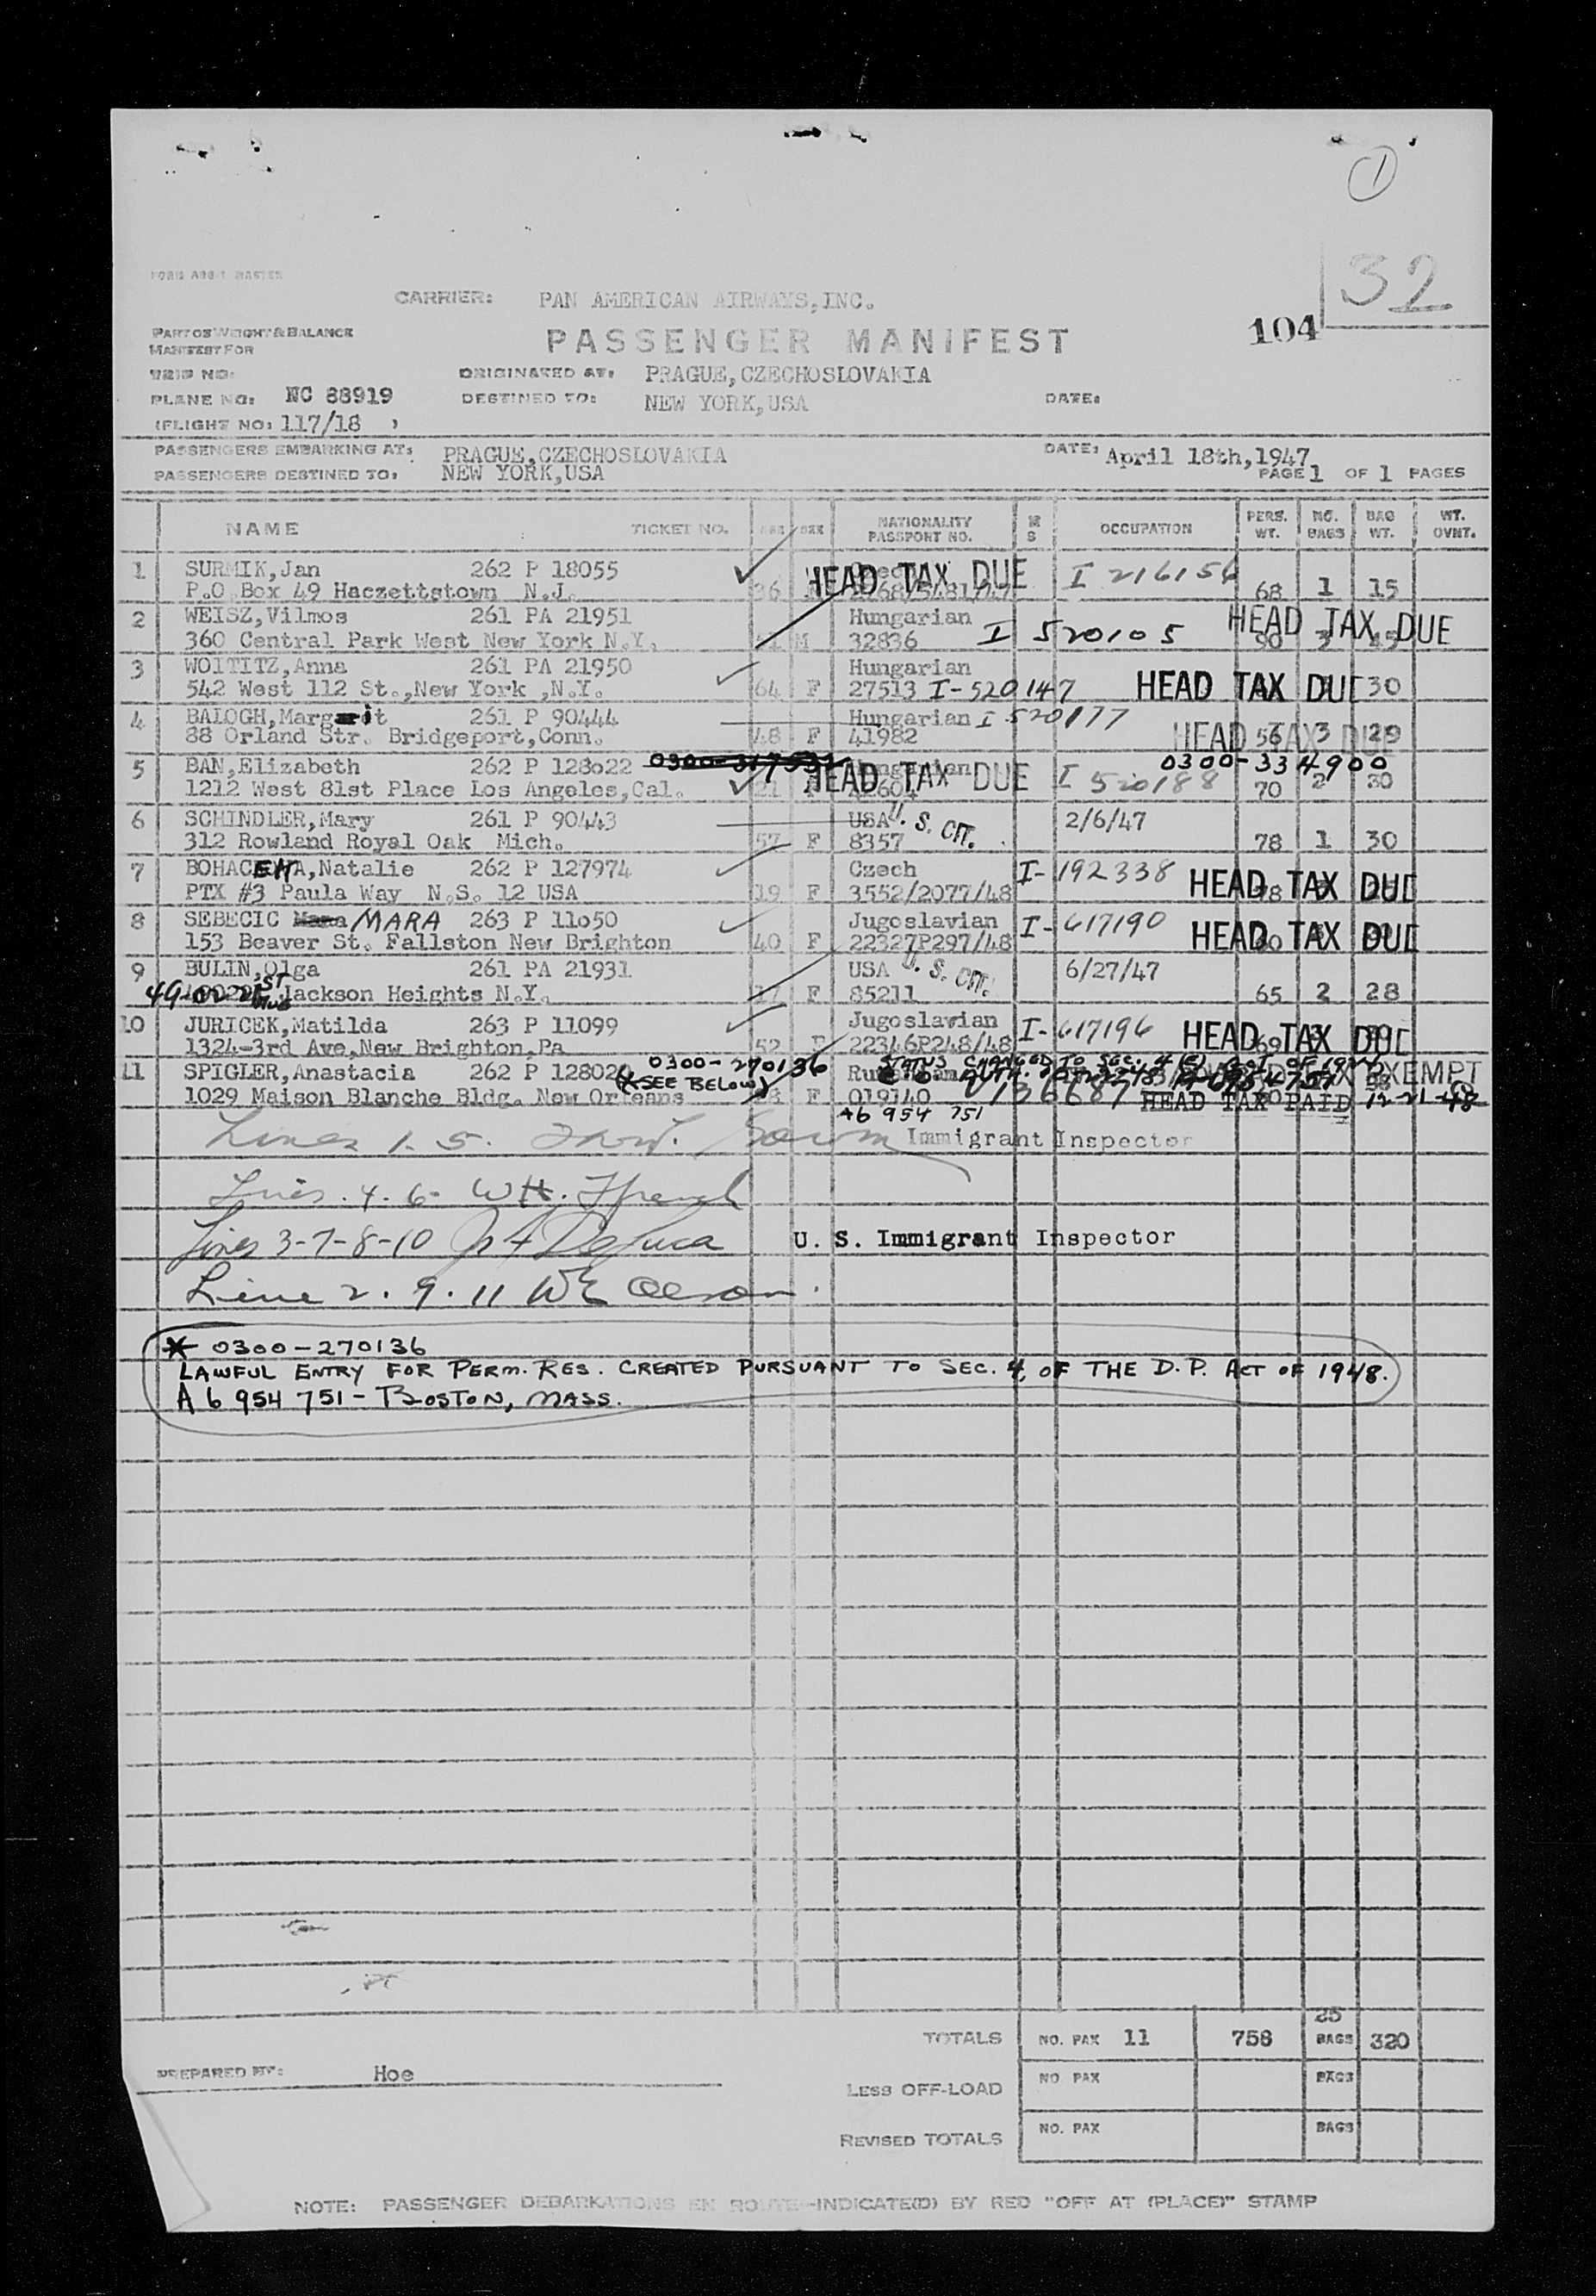 1
32
FORM ABB-1 MASTER
CARRIER: PAN AMERICAN AIRWAYS,INC.
104
PART OF WEIGHT & BALANCE
MANIFEST FOR
PASSENGER MANIFEST
TRIP NO:
ORIGINATED AT: PRAGUE,CZECHOSLOVAKIA
PLANE NO: NC 88919
DESTINED TO: NEW YORK,USA
DATE:
(FLIGHT NO: 117/18 )
PASSENGERS EMBARKING AT: PRAGUE,CZECHOSLOVAKIA
DATE: April 18th,1947
PASSENGERS DESTINED TO: NEW YORK,USA
PAGE 1 OF 1 PAGES
NAME TICKET NO. AGE SEX NATIONALITY PASSPORT NO. M S OCCUPATION PERS. WT. NO. BAGS BAG WT. WT. OVNT.
1 SURMIK,Jan 262 P 18055 HEAD TAX DUE I 216156
P.O Box 49 Haczettstown N.J. 36 68 1 15
2 WEISZ,Vilmos 261 PA 21951 Hungarian HEAD TAX DUE
360 Central Park West New York N.Y. M 32836 I 520105
3 WOITITZ,Anna 261 PA 21950 Hungarian
542 West 112 St.,New York ,N.Y. 64 F 27513 I-520147 HEAD TAX DUE 30
4 BALOGH,Margarit 261 P 90444 Hungarian I 520177
88 Orland Str. Bridgeport,Conn. 48 F 41982 HEAD TAX DUE 56 3 29
5 BAN,Elizabeth 262 P 128o22 HEAD TAX DUE 0300-334900
1212 West 81st Place Los Angeles,Cal. 21 I 520188 70 2 30
6 SCHINDLER,Mary 261 P 90443 USA U. S. CIT. 2/6/47
312 Rowland Royal Oak Mich. 57 F 8357 78 1 30
7 BOHACENA,Natalie 262 P 127974 Czech I-192338 HEAD TAX DUE
PTX #3 Paula Way N.S. 12 USA 19 F 3552/2077/48
8 SEBECIC MARA 263 P 11o50 Jugoslavian I-617190 HEAD TAX DUE
153 Beaver St. Fallston New Brighton 40 F 22327P297/48
9 BULIN,Olga 261 PA 21931 USA U. S. CIT. 6/27/47
Jackson Heights N.Y. F 85211 65 2 28
10 JURICEK,Matilda 263 P 11099 Jugoslavian I-617196 HEAD TAX DUE
1324-3rd Ave,New Brighton,Pa 52 22346P248/48
11 SPIGLER,Anastacia 262 P 12802 0300-270136 STATUS CHANGED TO SEC. 4 ACT OF 1924
(*SEE BELOW) TAX EXEMPT
1029 Maison Blanche Bldg. New Orleans F 019140 HEAD TAX PAID 12-21-48
A6 954 751
Lines 1. 5. Immigrant Inspector
Lines. 4. 6. WH.
Lines 3-7-8-10 DeLuca U. S. Immigrant Inspector
Line 2. 9. 11 WE Olerson
* 0300-270136
LAWFUL ENTRY FOR PERM. RES. CREATED PURSUANT TO SEC. 4, OF THE D.P. ACT OF 1948.
A 6 954 751 - BOSTON, MASS.
25
TOTALS NO. PAX 11 758 BAGS 320
PREPARED BY: Hoe
LESS OFF-LOAD NO. PAX BAGS
REVISED TOTALS NO. PAX BAGS
NOTE: PASSENGER DEBARKATIONS EN ROUTE-INDICATE(D) BY RED "OFF AT (PLACE)" STAMP